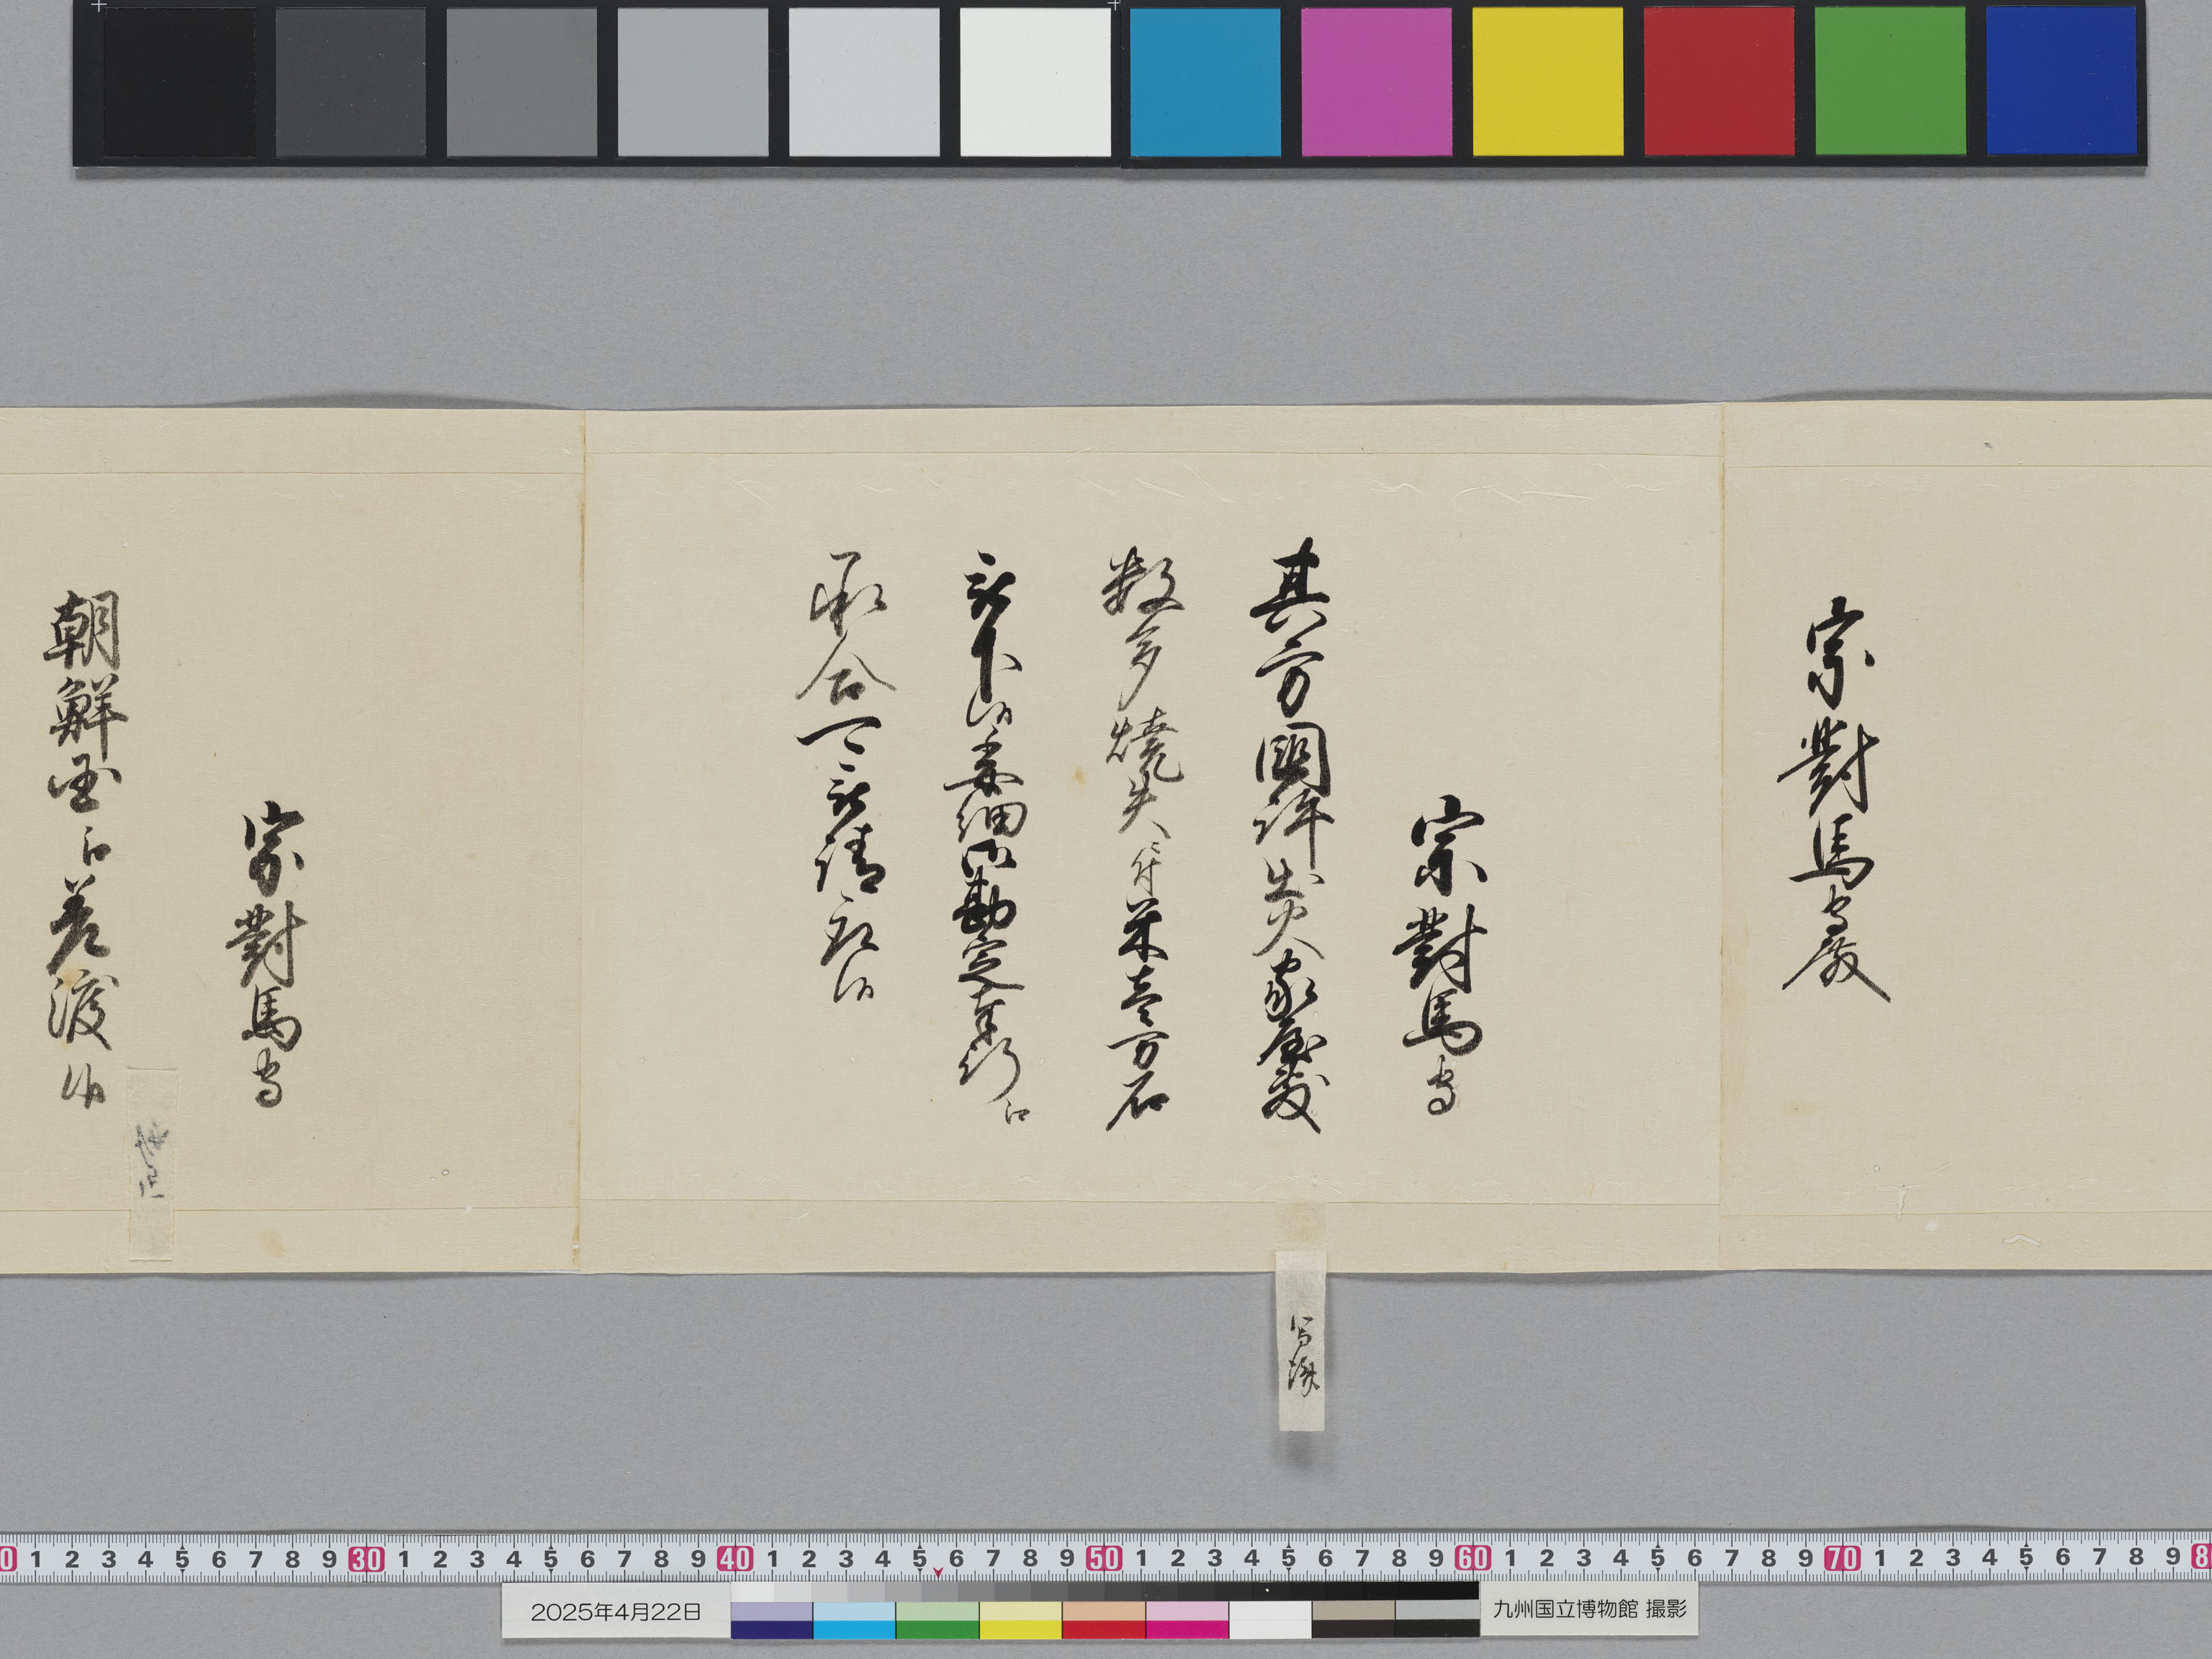 宗對馬守殿
宗對馬守
其方国許出火家屋敷
数多焼失ニ付米壱万石
被下候委細御勘定奉行江
承合可被請取候
写済
宗對馬守
朝鮮国江差渡候
0 1 2 3 4 5 6 7 8 9 30 1 2 3 4 5 6 7 8 9 40 1 2 3 4 5 6 7 8 9 50 1 2 3 4 5 6 7 8 9 60 1 2 3 4 5 6 7 8 9 70 1 2 3 4 5 6 7 8 9 8
2025年4月22日
九州国立博物館 撮影